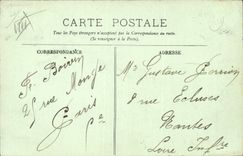 CARTE POSTALE
Tous les Pays étrangers n'acceptent pas la Correspondance au recto.
(Se renseigner à la Poste).
CORRESPONDANCE
ADRESSE
F. Boivin
25 rue Monge
Paris
Mr Gustave
8 rue Ecluses
Nantes
Loire Infre